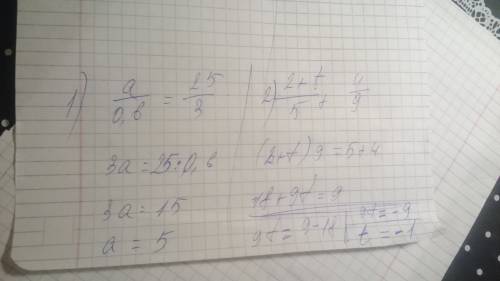 1) a/0,6 = 25/3
3a = 25 · 0,6
3a = 15
a = 5
2) (2+t)/5 + 4/9
(2+t) 9 = 5+4
18+9t = 9
9t = 9-18 | 9t = -9
t = -1